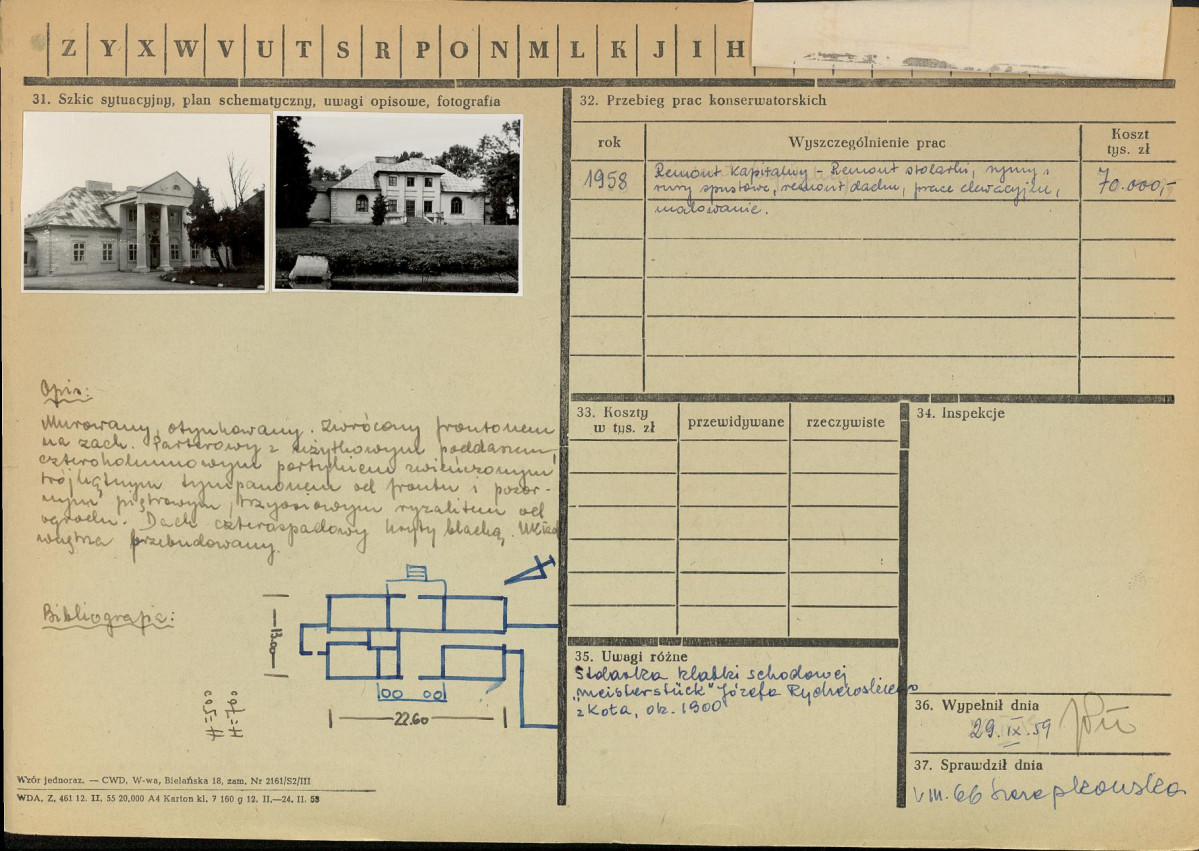 Z Y X W V U T S R P O N M L K J I H
31. Szkic sytuacyjny, plan schematyczny, uwagi opisowe, fotografia
Opis:
Murowany, otynkowany. Zwrócony frontonem
na zach. Parterowy z użytkowym poddaszem,
czterokolumnowym portykiem zwieńczonym
trójkątnym tympanonem od frontu i pozor-
nym piętrowym, trzyosiowym ryzalitem od
ogrodu. Dach czterospadowy kryty blachą. Układ
wnętrza przebudowany.
Bibliografia:
13.00
22.60
32. Przebieg prac konserwatorskich
rok
Wyszczególnienie prac
Koszt
tys. zł
1958
Remont kapitalny – Remont stolarki, rynny i
rury spustowe, remont dachu, prace elewacyjne,
malowanie.
70.000,-
33. Koszty
w tys. zł
przewidywane
rzeczywiste
34. Inspekcje
35. Uwagi różne
Stolarka klatki schodowej
„meisterstück" Józefa
z Koła, ok. 1900
36. Wypełnił dnia
29.IX.59
37. Sprawdził dnia
VIII.66
Wzór jednoraz. — CWD, W-wa, Bielańska 18, zam. Nr 2161/S2/III
WDA, Z, 461 12. II, 55 20,000 A4 Karton kl. 7 160 g 12. II.—24. II. 58